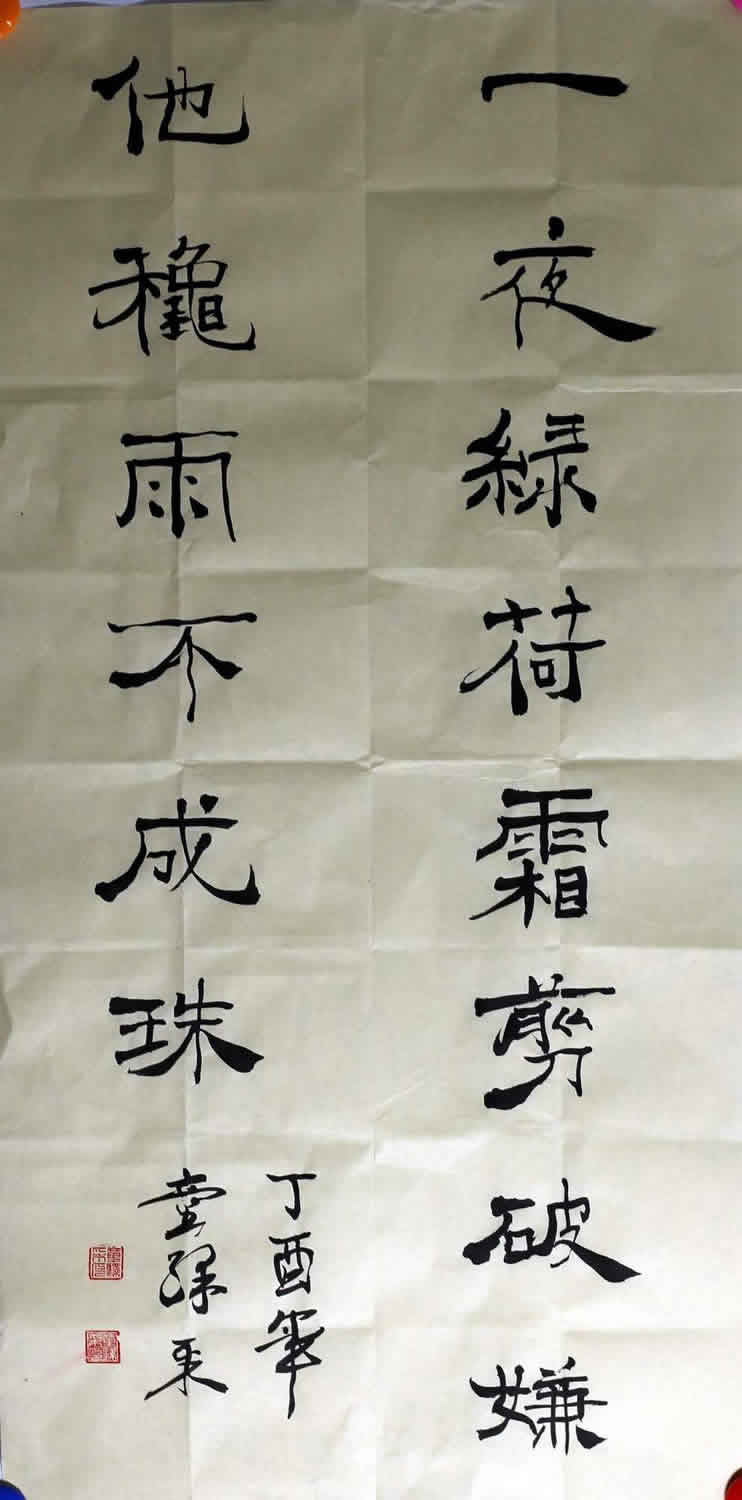 一夜緑荷霜剪破嫌
他龝雨不成珠
丁酉年
童